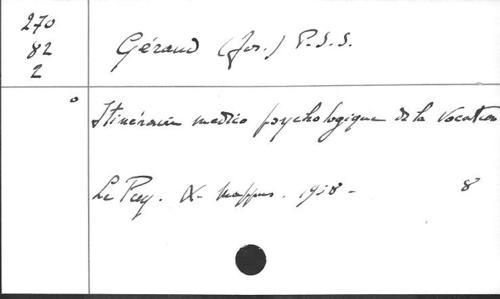 270
82
2
Géraud (Jos.) P.S.S.
Itinéraire medico psychologique de la Vocation
Le Puy. X. Mappus. 1958 -
8